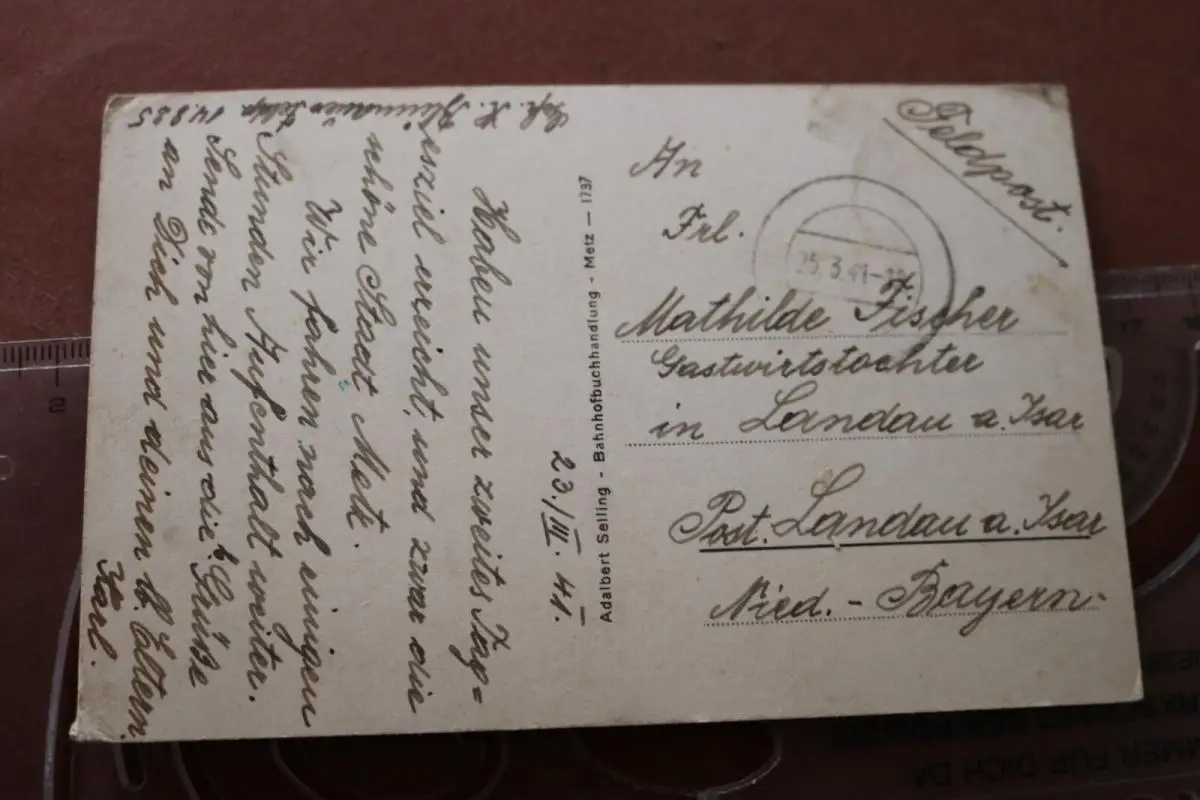 Feldpost.
An
Frl.
25.3.41
Mathilde Fischer
Gastwirtstochter
in Landau a. Isar
Post. Landau a. Isar
Nied. - Bayern.
Adalbert Selling - Bahnhofbuchhandlung - Metz — 1737
23./III. 41.
Haben unser zweites Tag=
esziel erreicht, und zwar die
schöne Stadt Metz.
Wir fahren nach einigen
Stunden Aufenthalt weiter.
Sende von hier aus die b. Grüße
an Dich und deinen lb. Eltern.
Karl.